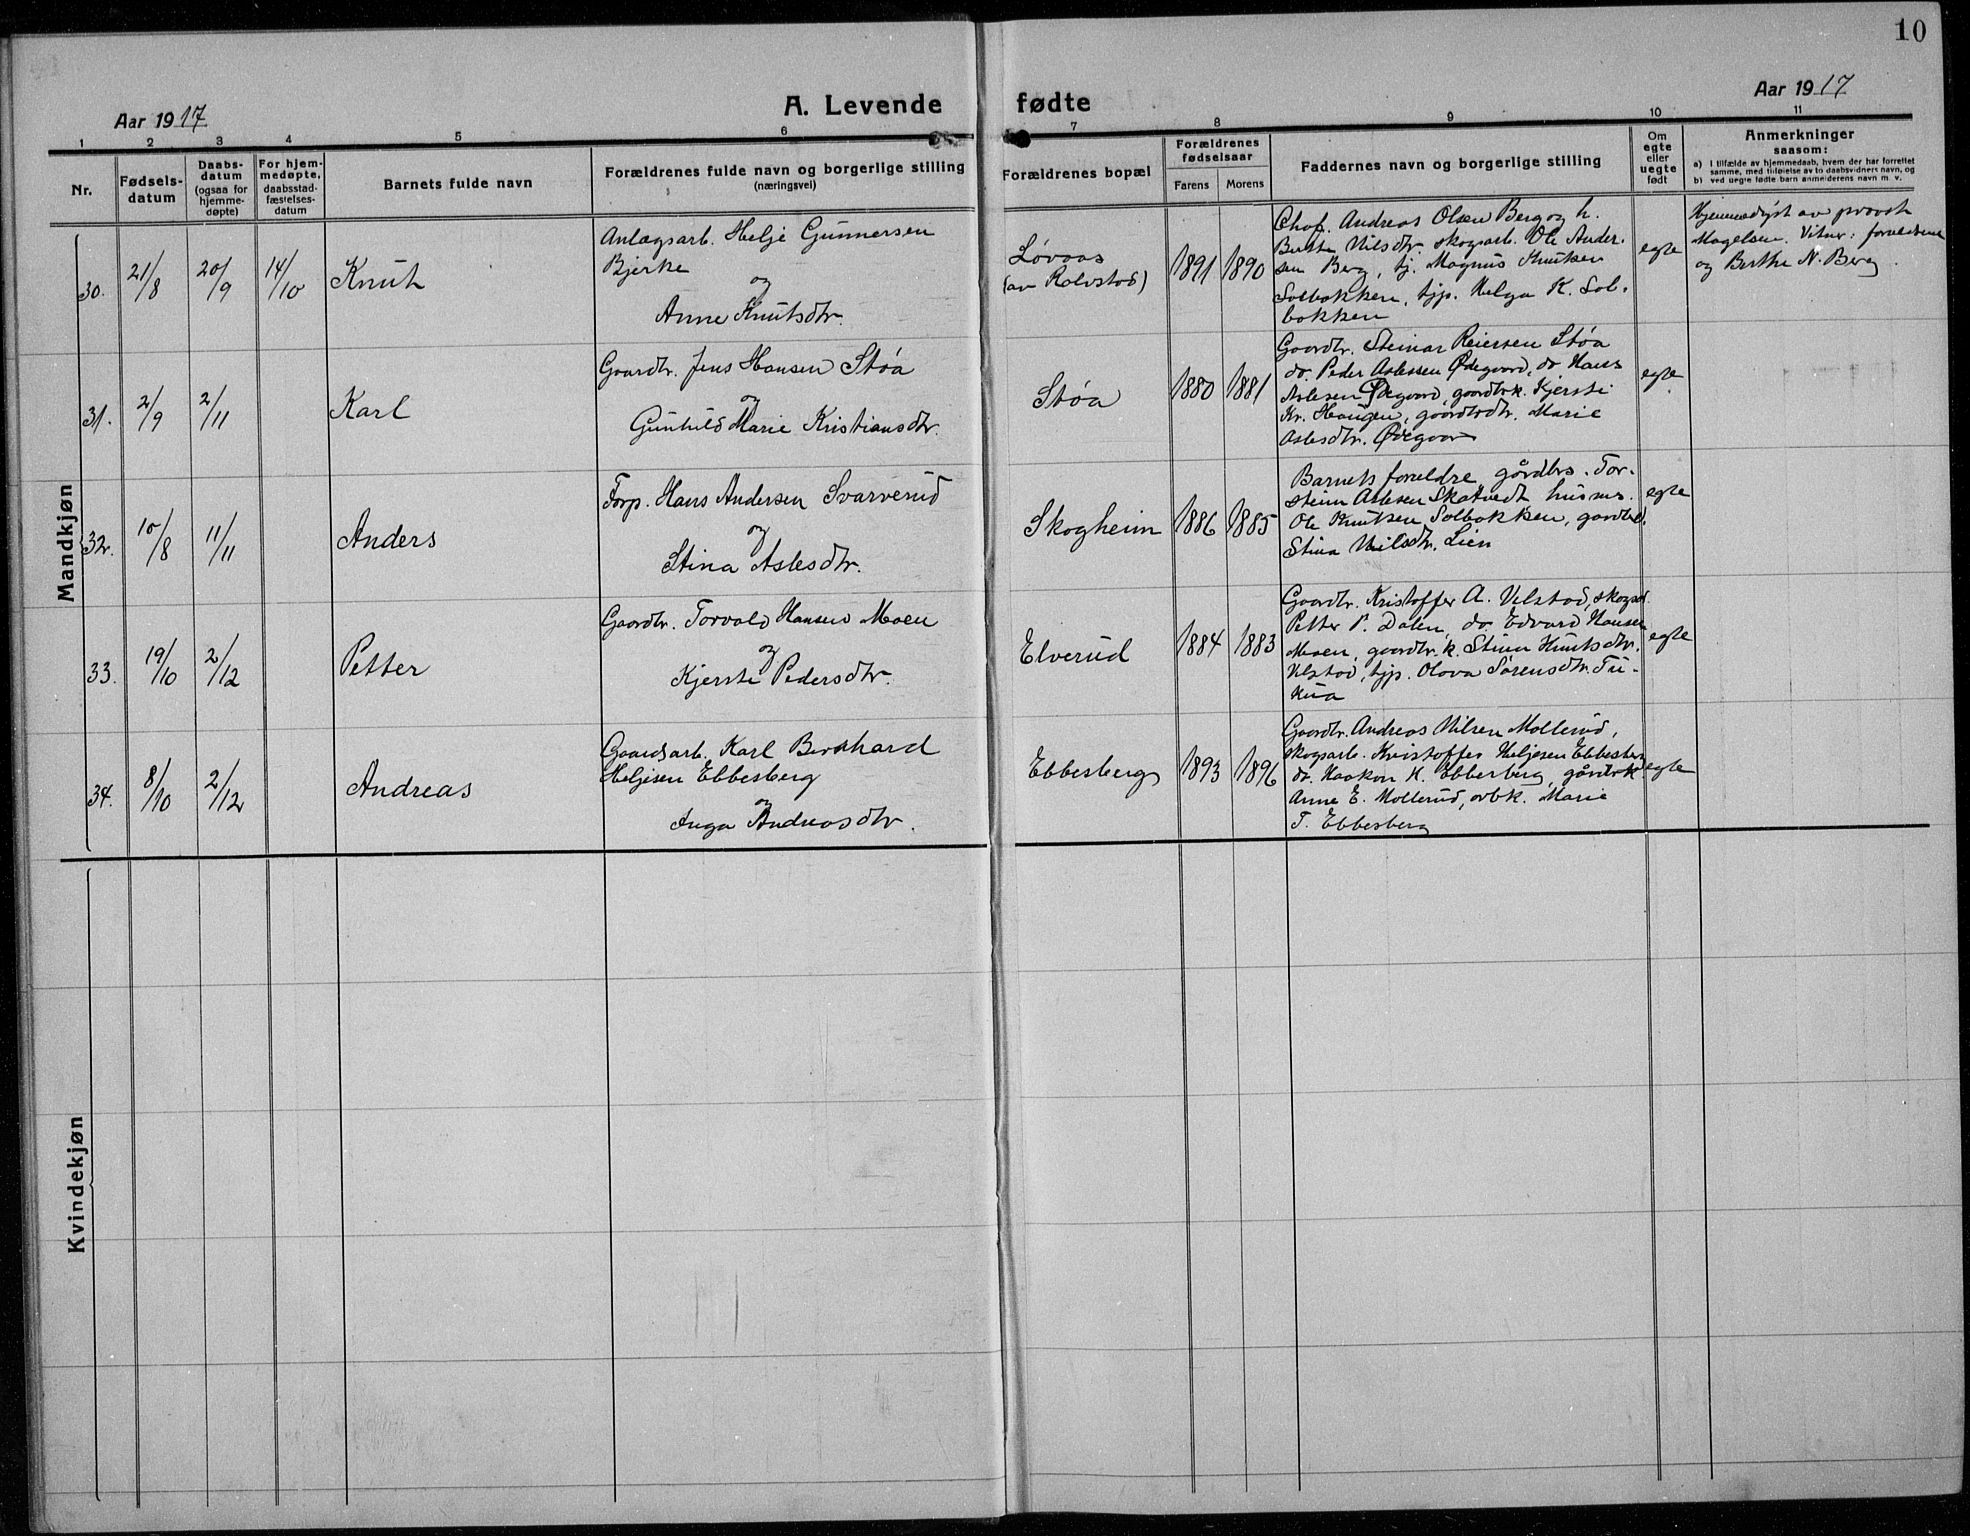 10
Aar 1917
A. Levende fødte
Aar 1917
1 2 3 4 5 6 7 8 9 10 11
Nr.
Fødsels-
datum
Daabs-
datum
(ogsaa for
hjemme-
døpte)
For hjem-
medøpte,
daabsstad-
fæstelses-
datum
Barnets fulde navn
Forældrenes fulde navn og borgerlige stilling
(næringsvei)
Forældrenes bopæl
Forældrenes
fødselsaar
Farens Morens
Faddernes navn og borgerlige stilling
Om
egte
eller
uegte
født
Anmerkninger
saasom:
a) I tilfælde av hjemmedaab, hvem der har forrettet
samme, med tilføielse av to daabsvidners navn, og
b) ved uegte fødte barn anmelderens navn m. v.
Mandkjøn
30. 21/8 20/9 14/10 Knut
Anlægsarb. Helje Gunnersen
Bjerke
og
Anne Knutsdtr.
Løvaas
(av Rolvstad)
1891 1890
Chof. Andreas Olsen Berg og h.
Berthe Nilsdtr. skogsarb. Ole Ander-
sen Berg, tj. Magnus Knutsen
Solbakken, tjp. Helga K. Sol-
bakken
egte
Hjemmedøpt av provst
Magelsen. Vitner: forældrene
og Berthe N. Berg.
31. 2/9 2/11 Karl
Gaardbr. Jens Hansen Støa
og
Gunhild Marie Kristiansdtr.
Støa
1880 1881
Gaardbr. Steinar Reiersen Støa
do. Peder Aslesen Ødegaard, do Hans
Aslesen Ødegaard, gaardbrk. Kjersti
Kr. Haugen, gaardbrdtr. Marie
Aslesdtr. Ødegaard
egte
32. 10/8 11/11 Anders
Forp. Hans Andersen Svarverud
og
Stina Aslesdtr.
Skogheim
1886 1885
Barnets forældre, gårdbrs. Tor-
stein Aslesen Skatvedt husms.
Ole Knutsen Solbakken, gardbd.
Stina Nilsdtr. Lien
egte
33. 19/10 2/12 Petter
Gaardbr. Torvald Hansen Moen
og
Kjersti Pedersdtr.
Elverud
1884 1883
Gaardbr. Kristoffer A. Velstad, skogsd.
Petter P. Dalen, do. Edvard Hansen
Moen, gaardbr.k. Stina Knutsdtr.
Velstad, tjp. Olava Sørensdtr. Tu-
kua
egte
34. 8/10 2/12 Andreas
Gaardsarb. Karl Bernhard
Heljesen Ebbesberg
og
Inga Andreasdtr.
Ebbesberg
1893 1896
Gaardbr. Andreas Nilsen Mollerud,
skogsarb. Kristoffer Heljesen Ebbesberg
do. Haakon H. Ebbesberg, gårdbrk
Anne E. Mollerud, arbk. Marie
T. Ebbesberg
egte
Kvindekjøn